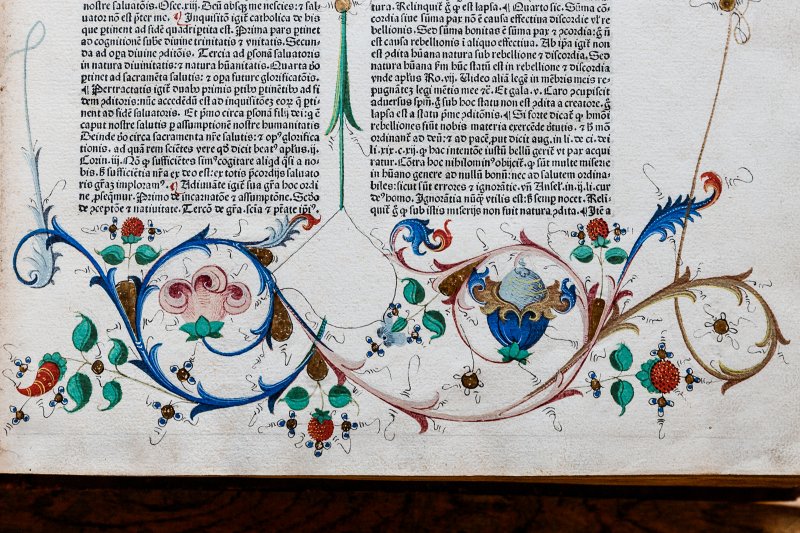 nostre saluatoris. Osee.xiij. Deū absq̄ me nescies: ⁊ sal-
uator nō est p̄ter me. ¶ Inquisitō igit̄ catholica de his
que ꝑtinent ad fidē q̄driꝑtita est. Prima pars ꝑtinet
ad cognitionē sube diuine trinitatis ⁊ vnitatis. Secun
da ad oꝑa diuine ꝯditōis. Tercia ad ꝑsonā saluatoris
in natura diuinitatis: ⁊ natura hūanitatis. Quarta ꝟo
ꝑtinet ad sacramēta salutis: ⁊ oꝑa future glorificatōis.
¶ Pertractatis igit̄ duab⁹ primis ꝑtib⁹ ꝑtinētib⁹ ad fi
dem ꝯditoris: nūc accedēdū est ad inquisitōez eoꝝ q̄ ꝑti-
nent ad fidē saluatoris. Et pͥmo circa ꝑsonā filij dei: q̄ ē
caput nostre salutis ꝑ assumptionē nostre humanitatis
Deinde ꝟo circa sacramenta nr̄e salutis: ⁊ oꝑa glorifica
tionis. ad quā rem sciētes vere qd̄ dicit beat⁹ apl̄us.ij.
Corin.iij. Nō ꝙ sufficiētes sim⁹ cogitare aliqd̄ q̄si a no-
bis. s̄ sufficiētia nr̄a ex deo est: ex totis p̄cordijs saluato
ris gr̄az imploram⁹. ¶ Adiuuāte igit̄ sua gr̄a hoc ordi
ne ꝓseq̄mur. Primo de incarnatōe ⁊ assumptōe. Secdo
de ꝯceptōe ⁊ natiuitate. Tercō de gr̄a. scīa ⁊ p̄tāte ip̄i⁹.
tura. Relinquit̄ ḡ ꝙ est lapsa. ¶ Quarto sic. Sūma cō
cordia siue sūma pax nō ē causa effectiua discordie vl̓ re
bellionis. Sed sūma bonitas ē sūma pax ⁊ ꝯcordia: ḡ nō
est causa rebellionis ī aliquo effectiua. Ab ip̄a igit̄ non
est ꝯdita hūana natur̄ sub rebellione ⁊ discordia. Sed
natura hūana ẜm hūc statū est in rebellione ⁊ discordia
vnde apl̄us Ro.vij. Uideo aliā legē in mēbris meis re-
pugnātez legi mētis mee ⁊c̄. Et gala.v. Caro ꝯcupiscit
aduersus spm̄. ḡ sub hoc statu non est ꝯdita a creatore. ḡ
lapsa est a statu pͥme ꝯditōnis. ¶ Si forte dicat̄ ꝙ hm̄oi
rebelliones sūt nobis materia exercēde ꝟtutis. ⁊ ẜ mō
ordinant̄ ad deū: ⁊ ad pacē. put dicit aug. in li. de ci. dei
li.xix.c.xij. ꝙ hac intentiōe iusti bellū gerūt vt pax acqui
ratur. Cōtra hoc nihilomin⁹ obijcit̄. ꝙ sūt multe miserie
in hūano genere ad nullū bonū: nec ad salutem ordina-
biles: sicut sūt errores ⁊ ignorātie. vn̄ Ansel. in.ij.li. cur
de⁹ homo. Ignorātia nūq̄ꝫ vtilis est: s̄ semp̄ nocet. Reli-
quit̄ ḡ ꝙ sub istis miserijs non fuit natura ꝯdita. ¶ Itē a